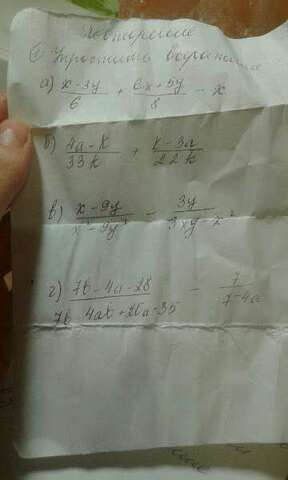 ① Упростить выражение
а) x-3y/6 + 6x+5y/8 - x
б) 4a-k/33k + k-3a/22k
в) x-9y/x²-9y² - 3y/3xy-x²
г) 7b-4a-28/7b 4ab+20a-35 - 7/7-4a